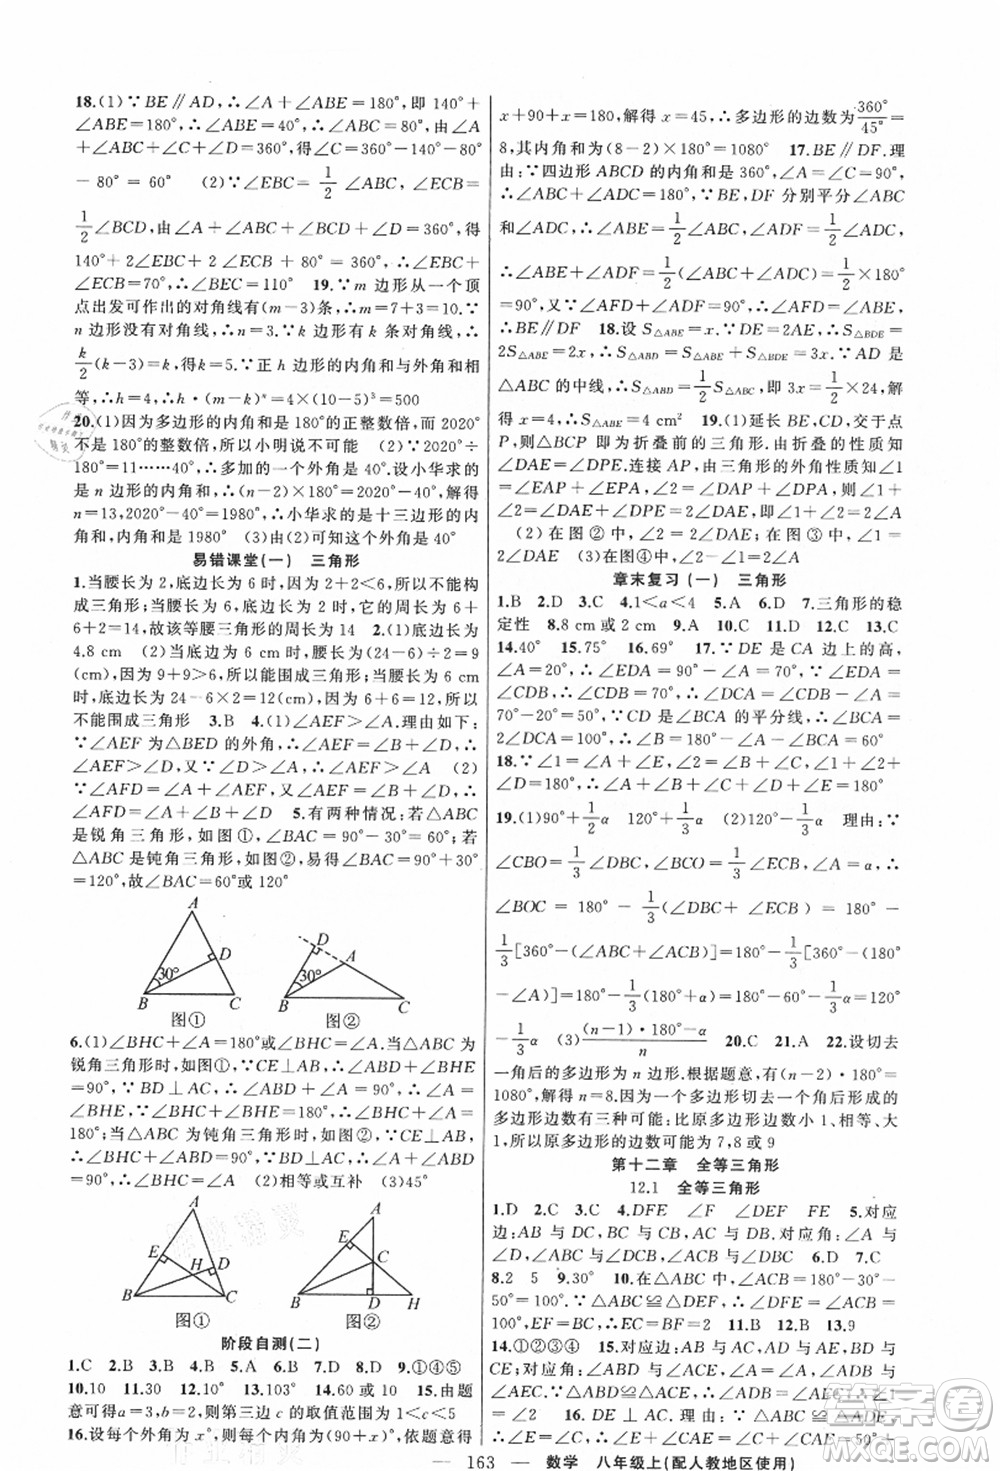 18.(1)∵BE∥AD,∴∠A+∠ABE=180°,即 140°+
∠ABE=180°,∴∠ABE=40°,∴∠ABC=80°,由∠A
+∠ABC+∠C+∠D=360°,得∠C=360°-140°-80°
-80°=60° (2)∵∠EBC=1/2∠ABC,∠ECB=
1/2∠BCD,由∠A+∠ABC+∠BCD+∠D=360°,得
140°+2∠EBC+2∠ECB+80°=360°,∴∠EBC+
∠ECB=70°,∴∠BEC=110° 19.∵m 边形从一个顶
点出发可作出的对角线有(m-3)条,∴m=7+3=10.∵
n 边形没有对角线,∴n=3.∵k 边形有 k 条对角线,∴
k/2(k-3)=k,∴k=5.∵正 h 边形的内角和与外角和相
等,∴h=4,∴h·(m-k)ⁿ=4×(10-5)³=500
20.(1)因为多边形的内角和是 180°的正整数倍,而 2020°
不是 180°的整数倍,所以小明说不可能 (2)∵2020°÷
180°=11……40°,∴多加的一个外角是 40°.设小华求的
是 n 边形的内角和,∴(n-2)×180°=2020°-40°,解得
n=13,2020°-40°=1980°,∴小华求的是十三边形的内角
和,内角和是 1980° (3)由(2)可知这个外角的度数是 40°
易错课堂(一) 三角形
1.当腰长为 2,底边长为 6 时,因为 2+2<6,所以不能构
成三角形;当腰长为 6,底边长为 2 时,此时周长为 6+
6+2=14,故该等腰三角形的周长为 14 2.(1)腰长为
4.8 cm (2)当底边为 6 cm 时,腰长为(24-6)÷2=9
(cm),因为 6+9>9,所以能围成三角形;当腰长为 6 cm
时,底边长为 24-6×2=12(cm),因为 6+6=12,所以
不能围成三角形 3.B 4.(1)∠AEF>∠A.理由如下:
∵∠AEF 为△BED 的外角,∴∠AEF=∠B+∠D,
又∵∠A=∠B,∴∠AEF=∠A+∠D,∴∠AEF>∠A (2)∵
∠BFD=∠A+∠AEF,又∠AEF=∠B+∠D,
∴∠BFD=∠A+∠B+∠D 5.有两种情况:若△ABC
是锐角三角形,如图①,∠BAC=90°-30°=60°;若
△ABC 是钝角三角形,如图②,易得∠BAC=90°+30°
=120°,故∠BAC=60°或 120°
A
D
30°
B
C
图①
D
A
30°
B
C
图②
6.(1)∠BHC+∠A=180°或∠BHC=∠A.当△ABC为
锐角三角形时,如图①,∵CE⊥AB,∴∠ECA+∠A
=90°,∵BD⊥AC,∴∠ECA+∠CHD=90°,∴
∠A=∠CHD,∵∠CHD+∠BHC=180°,∴∠BHC+∠A
=180°;当△ABC 为钝角三角形时,如图②,∵BD⊥
∴∠BHC=∠A (2)相等或互补 (3)45°
A
E
D
H
B
C
图①
A
E
C
B
D
H
图②
阶段自测(二)
1.C 2.D 3.B 4.B 5.A 6.B 7.B 8.C 9.①④⑤
10.10 11.30 12.10° 13.103° 14.60 或 10 15.由题
意可得a=3,b=2,∴第三边 c 的取值范围为 1<c<5
16.设每个外角为 x°,则每个内角为(90+x)°,依题意得
x+90+x=180,解得 x=45,∴多边形的边数为360°/45°=
8,其内角和为(8-2)×180°=1080° 17.BE∥DF.理
由:∵四边形 ABCD 的内角和是 360°,∠A=∠C=90°,
∴∠ABC+∠ADC=180°.∵BE,DF 分别平分∠ABC
和∠ADC,∴∠ABE=1/2∠ABC,∠ADF=1/2∠ADC,
∴∠ABE+∠ADF=1/2(∠ABC+∠ADC)=1/2×180°=
90°,又∵∠AFD+∠ADF=90°,∴∠AFD=∠ABE,∴
BE∥DF 18.设 S△ABE=x.∵DE=2AE,∴S△BDE=
2S△ABE=2x,∴S△ABD=S△ABE+S△BDE=3x.∵AD 是
△ABC 的中线,∴S△ABD=1/2S△ABC,即 3x=1/2×24,∴x
=4,∴△ABE 的面积为 4 cm² 19.(1)延长 BD,CE,交于点
P,则△BCP 即为折叠前的三角形.由折叠的性质知
∠DAE=∠DPE.连接 AP,由三角形的外角性质知∠1
=∠EAP+∠EPA,∠2=∠DAP+∠DPA,则∠1+
∠2=∠DAE+∠DPE=2∠DAE,即∠1+∠2=2∠DAE
(2)在图②中,∠2=2∠DAE;在图③中,∠2=∠1+
2∠DAE (3)图④中,∠1+∠2=2∠DAE
章末复习(一) 三角形
1.B 2.D 3.C 4.1<a<4 5.A 6.D 7.三角形的稳
定性 8.8 cm 或 2 cm 9.A 10.C 11.B 12.C 13.C
14.40° 15.75° 16.69° 17.∵DE 是 CA 边上的高,
∠A=20°,∴∠EDA=90°-∠A=70°,∵∠EDA=
∠CDB,∴∠CDB=70°,∵CD 是∠BCA 的平分线,∴∠BCA=
2∠DCA=100°,∴∠B=180°-∠BCA-∠A=60°
18.∵∠1=∠E+∠D,∠2=∠A+∠C,∠1+∠2+∠B
=180°,∴∠A+∠B+∠C+∠D+∠E=180°
19.(1)90°+1/2α 120°+1/3α (2)120°-1/3α 理由:∵
∠CBO=1/3∠DBC,∠BCO=1/3∠ECB,∠A=α,∴
∠BOC=180°-1/3(∠DBC+∠ECB)=180°-
1/3[360°-(∠ABC+∠ACB)]=180°-1/3[360°-(180°
-∠A)]=180°-1/3(180°+α)=180°-60°-1/3α=120°-
1/3α (3)(n-1)·180°-α/n 20.C 21.A 22.设切去
一角后的多边形为 n 边形.根据题意,有(n-2)×180°=
1080°,解得 n=8,因为一个多边形切去一个角后形成的
多边形边数有三种可能:比原多边形边数小 1、相等、大
1,所以原多边形的边数可能为 7,8 或 9
第十二章 全等三角形
12.1 全等三角形
1.D 2.C 3.C 4.DFE ∠F ∠DEF FE 5.对应
边:AB 与 DC,AC 与 DB,BC 与 CB;对应角:∠A 与∠D,
∠ABC 与∠DCB,∠ACB 与∠DBC 6.D 7.C
8.2 5 9.30° 10.∵在△ABC 中,∠A=30°,∠B=
50°,∴∠ACB=100°.∵△ABC≌△DEF,∴∠DFE=∠ACB=100°,
EF=BC,∴EC=BF=2 11.B 12.B 13.9
14.①②③④ 15.对应边:AB 与 AC,AE 与 AD,BD 与
CE;对应角:∠ABD 与∠ACE,∠ADB 与∠AEC,
163 数学 八年级上(配人教地区使用)